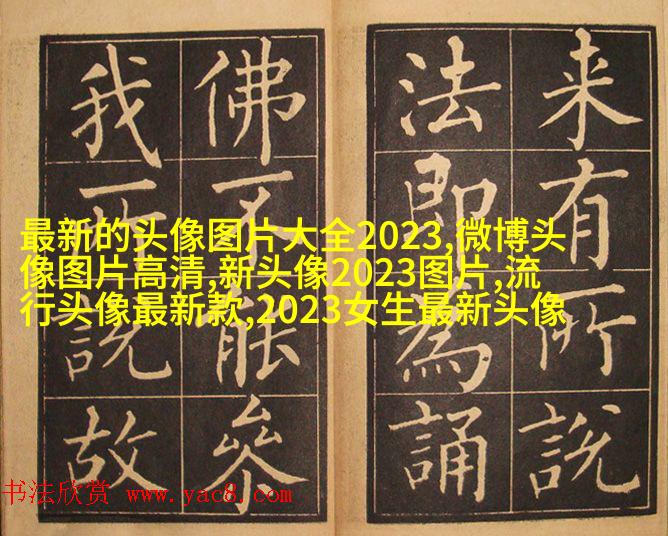 来有所說
法即為誦
佛不能叅
我所說故
最新的头像图片大全2023,微博头
像图片高清,新头像2023图片,流
行头像最新款,2023女生最新头像
书法欣赏 www.yac8.com